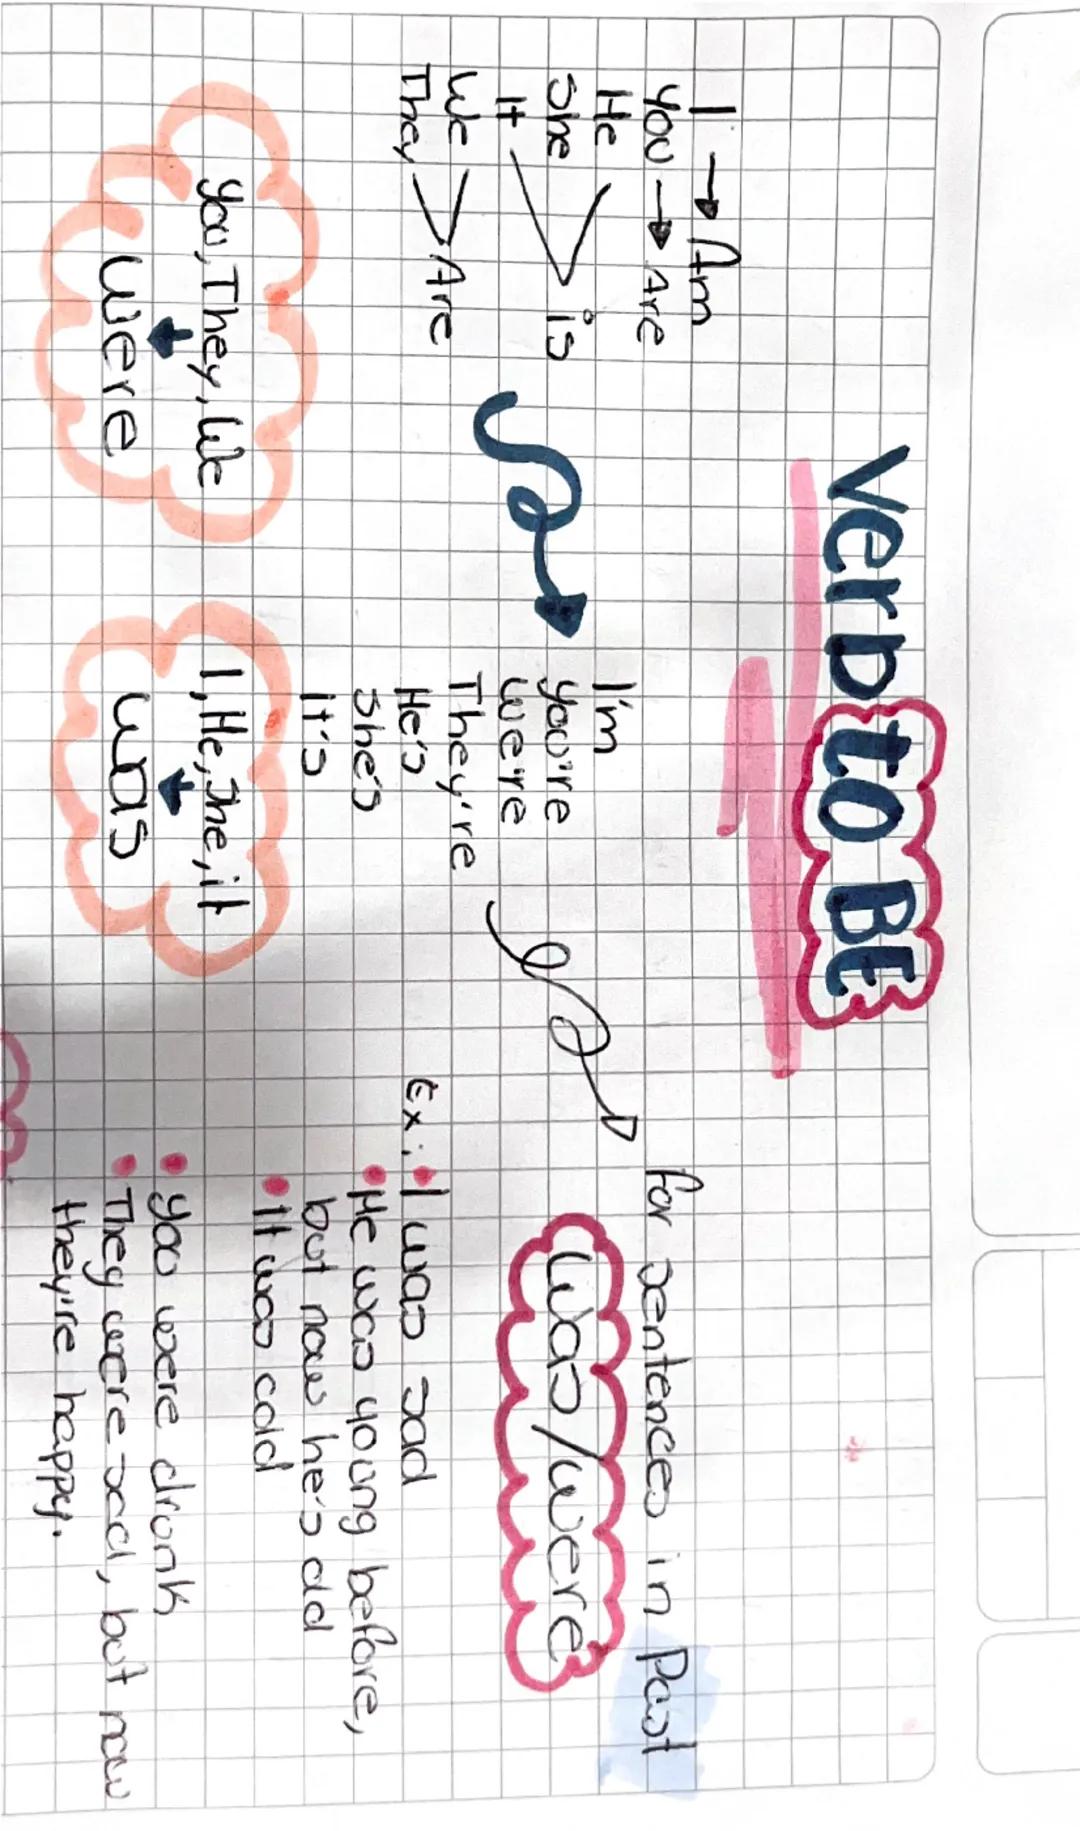 Verb TO BE
I → Am
You → Are
He
She
It
is
We
They
Are
I'm
you're
we're
They're
He's
She's
It's
for sentences in Past
Was/were
Ex: • I was sad
• He was young before,
but now he's old
• It was cold
• you were drunk
• They were sad, but now
they're happy.
you, They, We
↓
were
I, He, She, it
↓
was